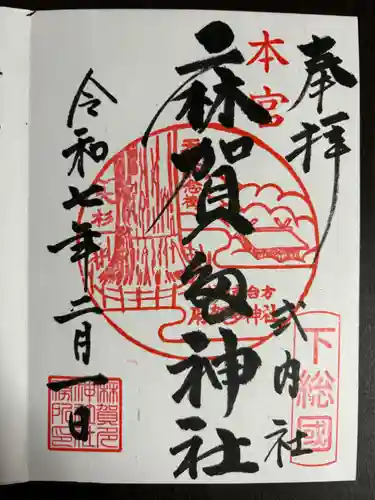 奉拝
本宮
麻賀多神社
式内社
下総國
令和七年二月一日
大杉
麻賀多神社